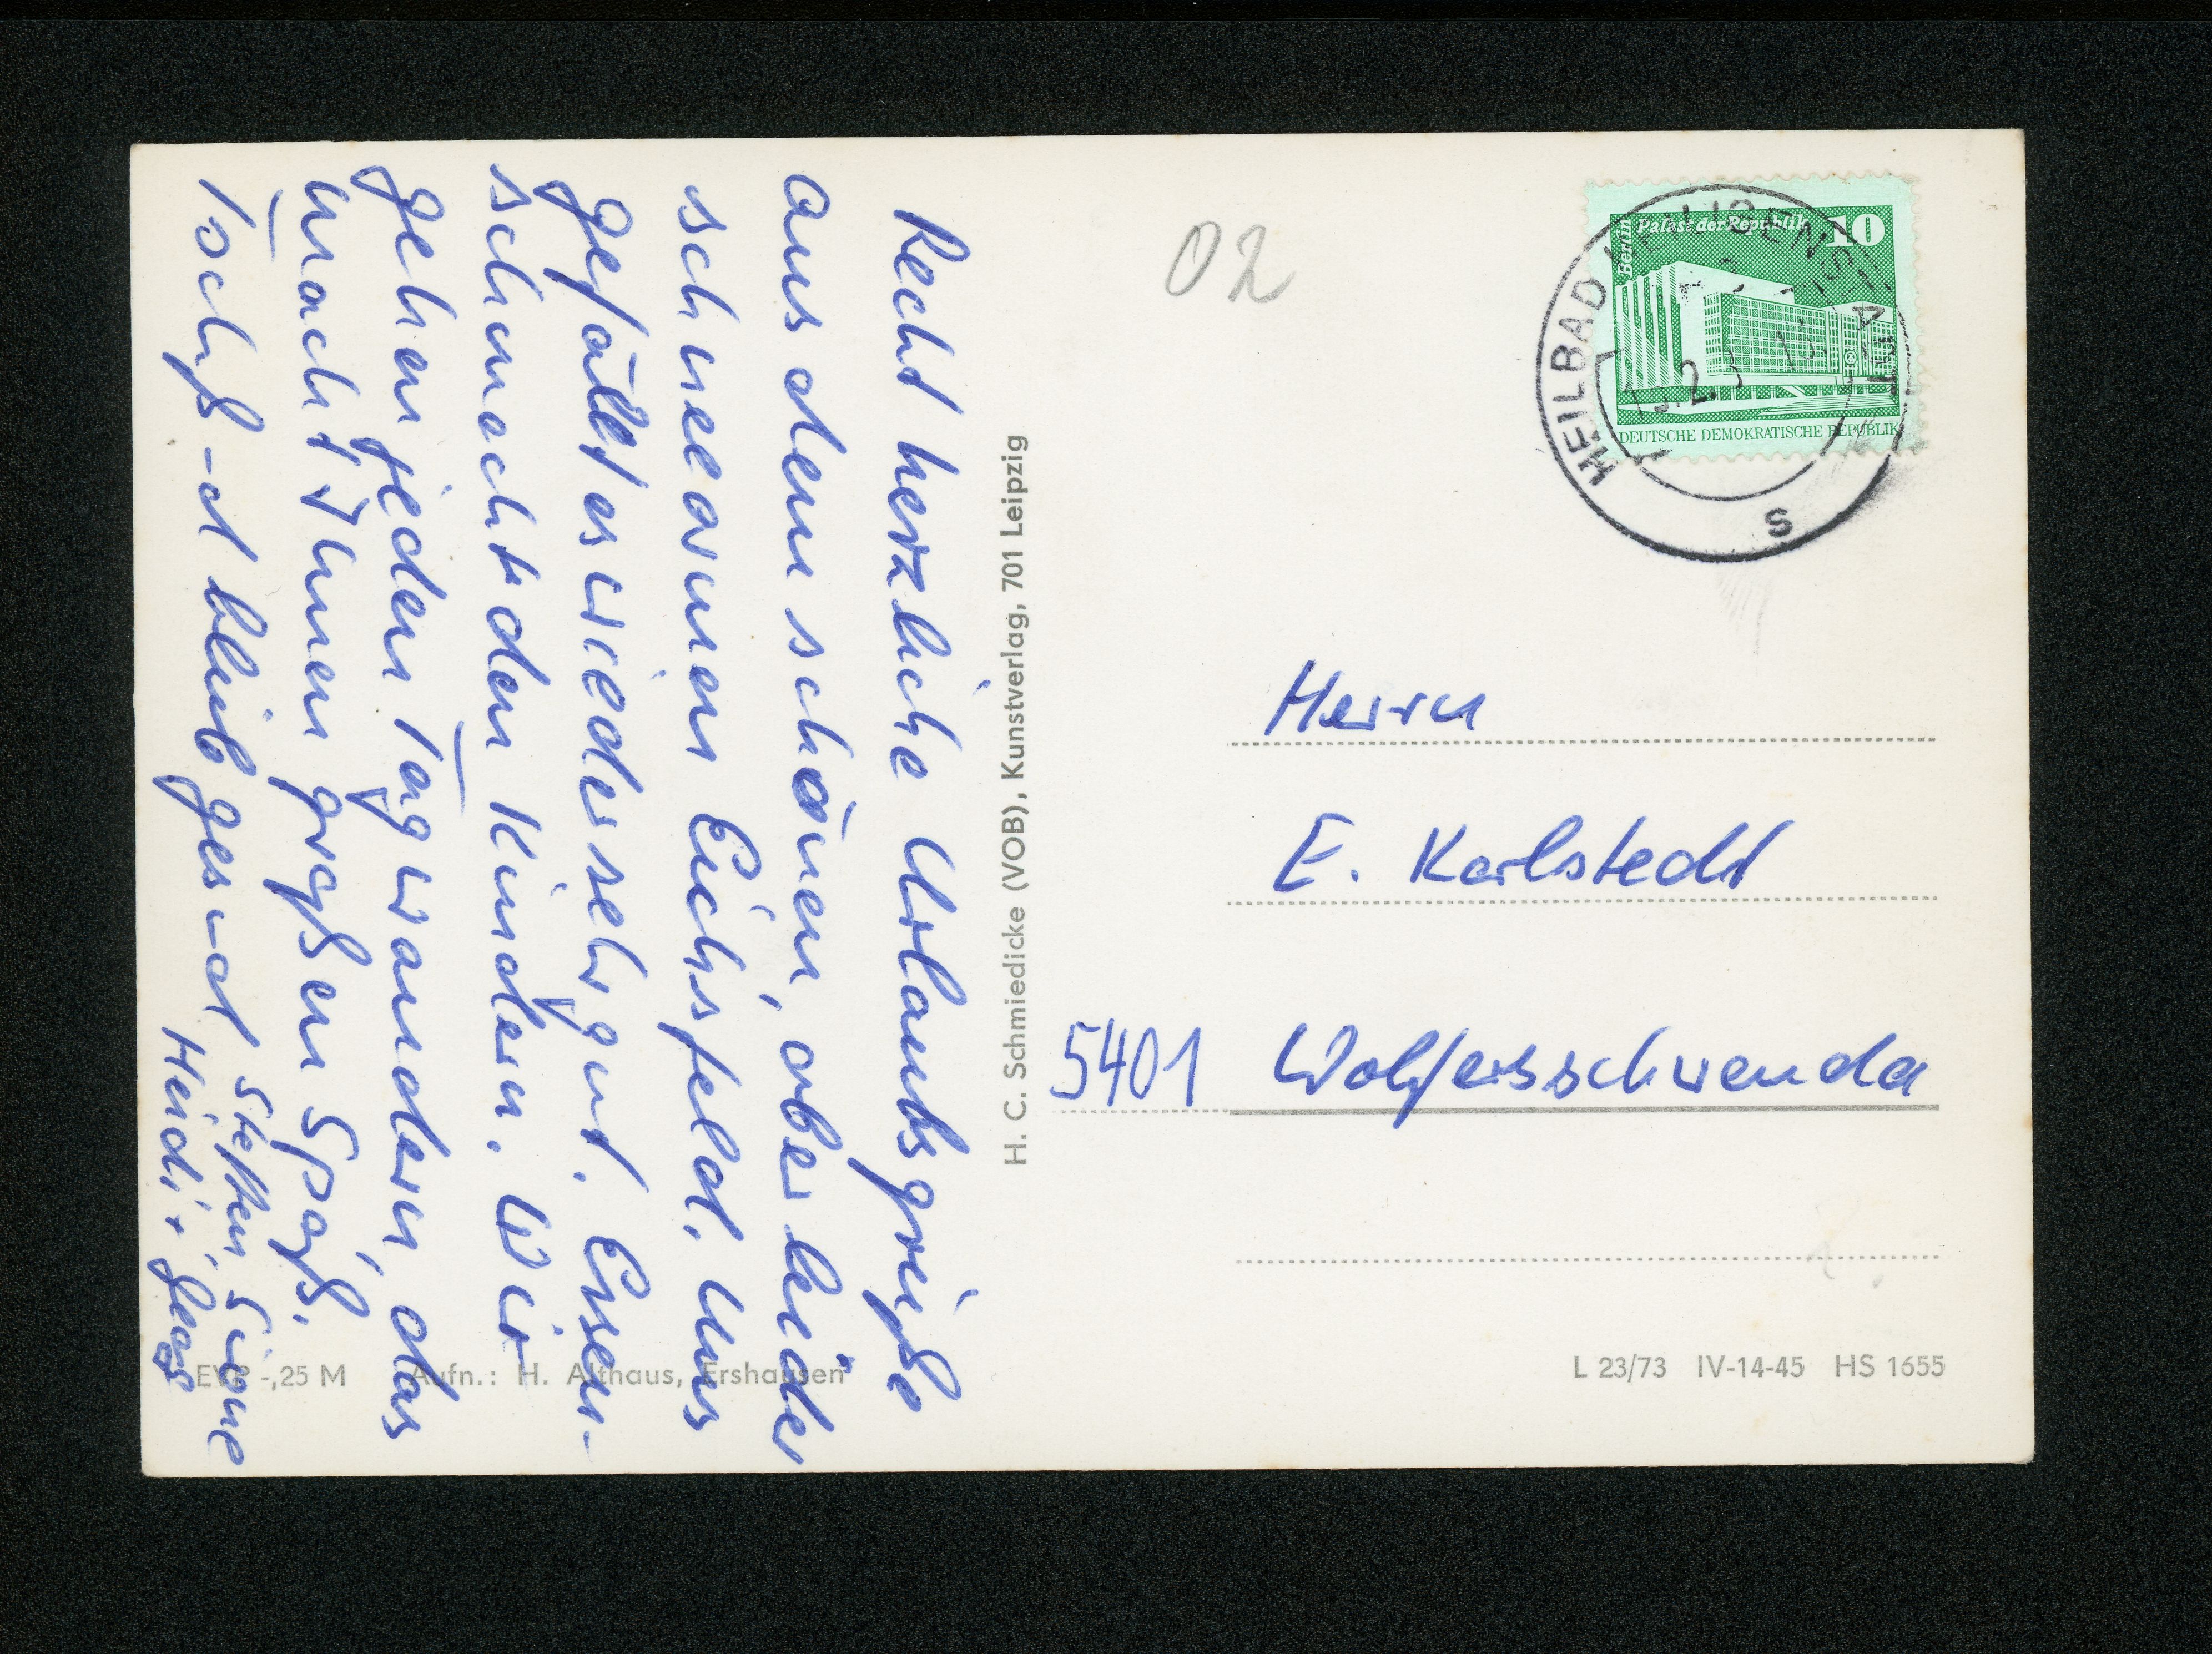 Recht herzliche Urlaubsgrüße
aus dem schönen, aber leider
schneearmen Eichsfeld. Uns
gefällt es wieder sehr gut. Essen
schmeckt den Kindern. Wir
gehen jeden Tag wandern, das
macht Ihnen großen Spaß.
Tschüß -d bleib ges-d Steffen, Simone
Heidi +
H. C. Schmiedicke (VOB), Kunstverlag, 701 Leipzig
02
Berlin Palast der Republik 10
DEUTSCHE DEMOKRATISCHE REPUBLIK
HEILBAD HEILIGENSTADT
s
Herrn
E. Karlstedt
5401 Wolferschwenda
EVP -,25 M Aufn.: H. Althaus, Ershausen
L 23/73 IV-14-45 HS 1655